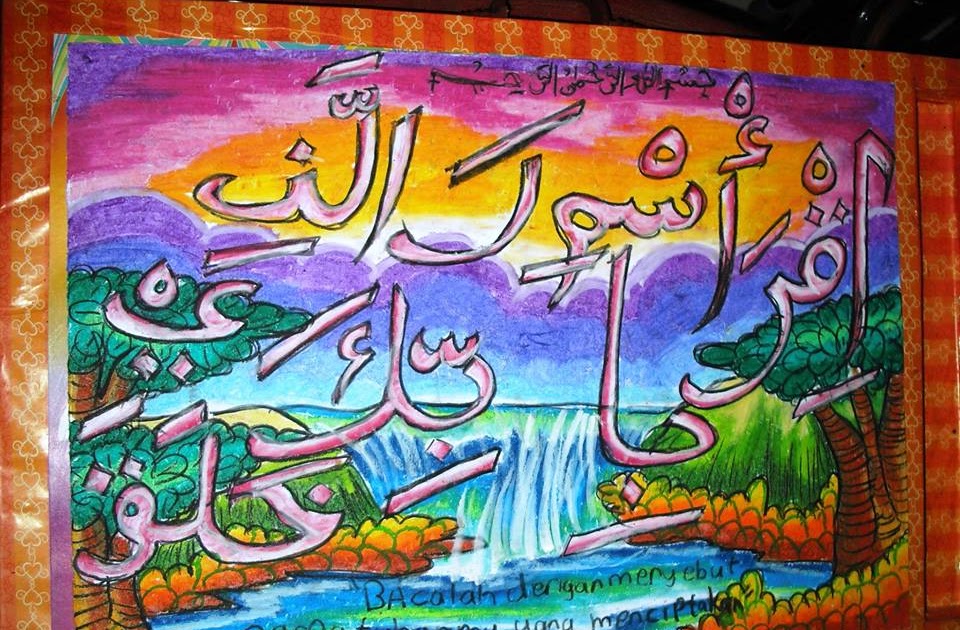 بسم الله الرحمن الرحيم
اِقْرَأْ بِاسْمِ رَبِّكَ الَّذِيْ خَلَقَ
"BAcalah dengan menyebut
nama tuhanmu yang menciptakan"